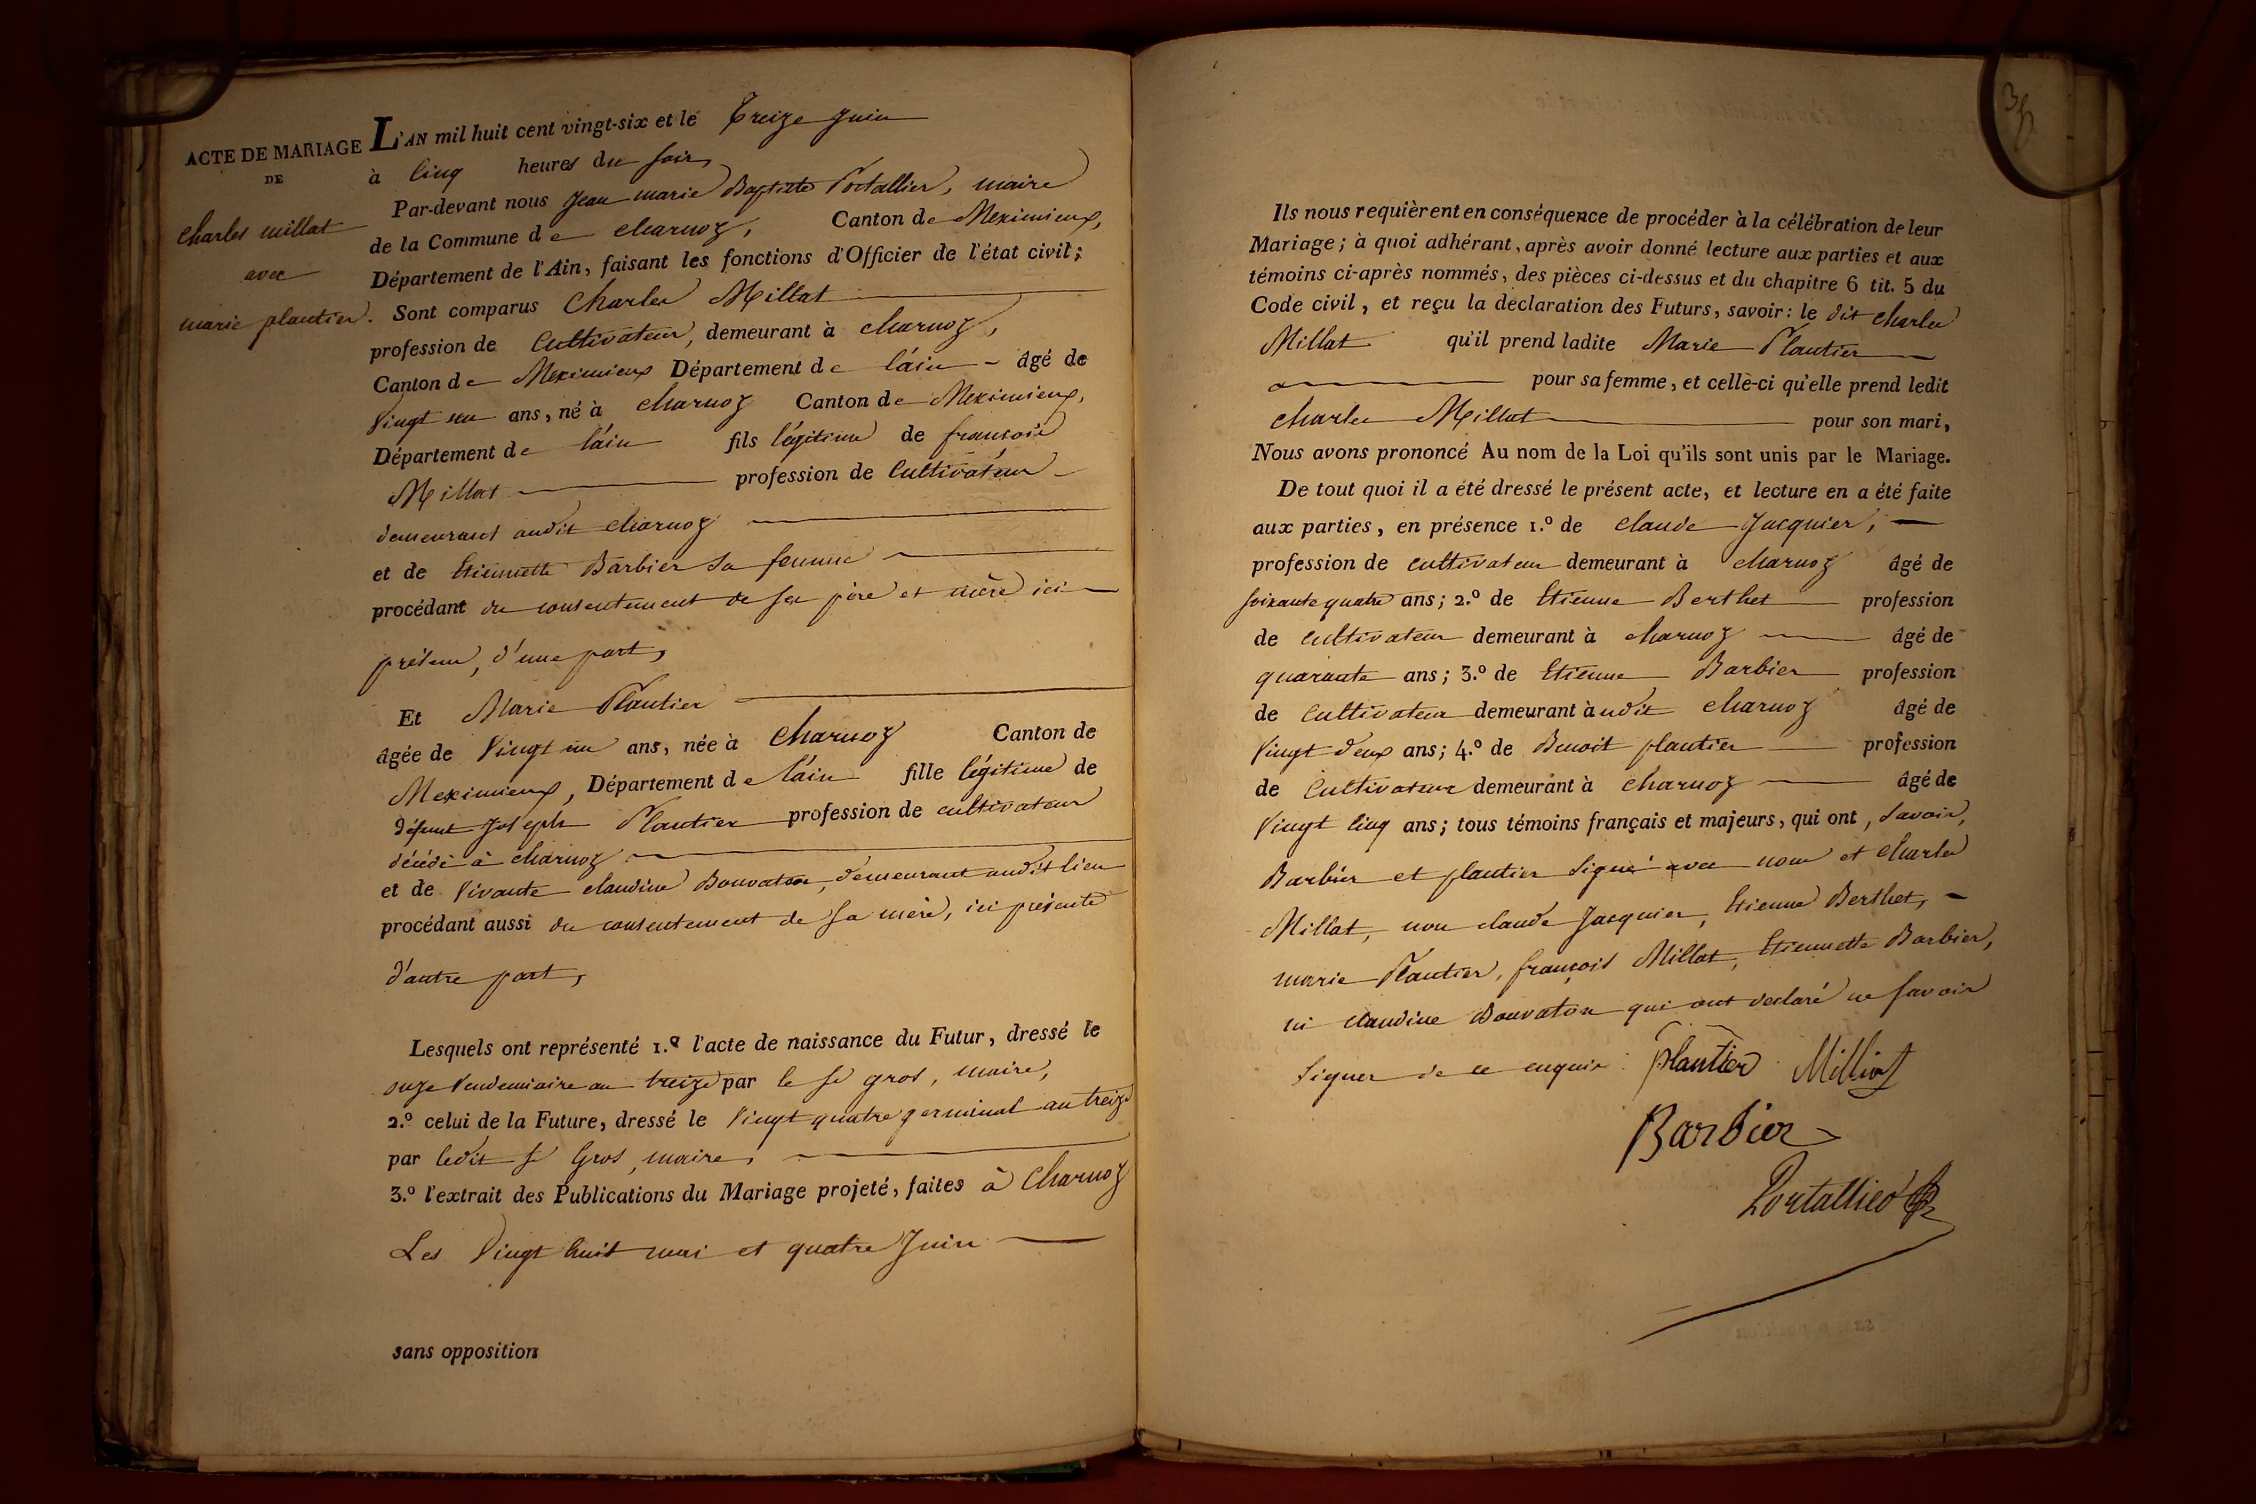 ACTE DE MARIAGE
DE
charles millat
avec
marie plantier.
L'AN mil huit cent vingt-six et le Treize juin
à Cinq heures du soir
Par-devant nous jean marie Baptiste Portallier, maire
de la Commune de charnoz, Canton de Meximieux,
Département de l'Ain, faisant les fonctions d'Officier de l'état civil;
Sont comparus Charles Millat
profession de Cultivateur, demeurant à charnoz,
Canton de Meximieux Département de l'ain âgé de
Vingt un ans, né à charnoz Canton de Meximieux,
Département de l'ain fils légitime de francois
Millat profession de Cultivateur
demeurant audit charnoz
et de Etiennette Barbier sa femme
procédant du consentement de ses père et mère ici
présens, d'une part,
Et Marie Plantier
âgée de Vingt un ans, née à Charnoz Canton de
Meximieux, Département de l'ain fille légitime de
défunt joseph Plantier profession de cultivateur
décédé à charnoz
et de Vivante claudine Bouvaton, demeurant audit lieu
procédant aussi du consentement de sa mère, ici présente
d'autre part,
Lesquels ont représenté 1.º l'acte de naissance du Futur, dressé le
onze Vendemiaire an treize par le Sr gros, maire,
2.º celui de la Future, dressé le Vingt quatre germinal an treize
par ledit Sr Gros, maire,
3.º l'extrait des Publications du Mariage projeté, faites à Charnoz
Les Vingt huit mai et quatre Juin
sans opposition
36
Ils nous requièrent en conséquence de procéder à la célébration de leur
Mariage; à quoi adhérant, après avoir donné lecture aux parties et aux
témoins ci-après nommés, des pièces ci-dessus et du chapitre 6 tit. 5 du
Code civil, et reçu la déclaration des Futurs, savoir: le dit Charles
Millat qu'il prend ladite Marie Plantier
pour sa femme, et celle-ci qu'elle prend ledit
charles Millat pour son mari,
Nous avons prononcé Au nom de la Loi qu'ils sont unis par le Mariage.
De tout quoi il a été dressé le présent acte, et lecture en a été faite
aux parties, en présence 1.º de claude Jacquier,
profession de cultivateur demeurant à charnoz âgé de
soixante quatre ans; 2.º de Etienne Berthet profession
de cultivateur demeurant à charnoz âgé de
quarante ans; 3.º de Etienne Barbier profession
de Cultivateur demeurant audit charnoz âgé de
Vingt deux ans; 4.º de Benoit plantier profession
de Cultivateur demeurant à charnoz âgé de
Vingt Cinq ans; tous témoins français et majeurs, qui ont, savoir,
Barbier et plantier signé avec nous et charles
Millat, non claude Jacquier, Etienne Berthet,
marie Plantier, françois Millat, Etiennette Barbier,
ni claudine Bouvaton qui ont declaré ne savoir
signer de ce enquis. plantier Milliat
Barbier
Portallier